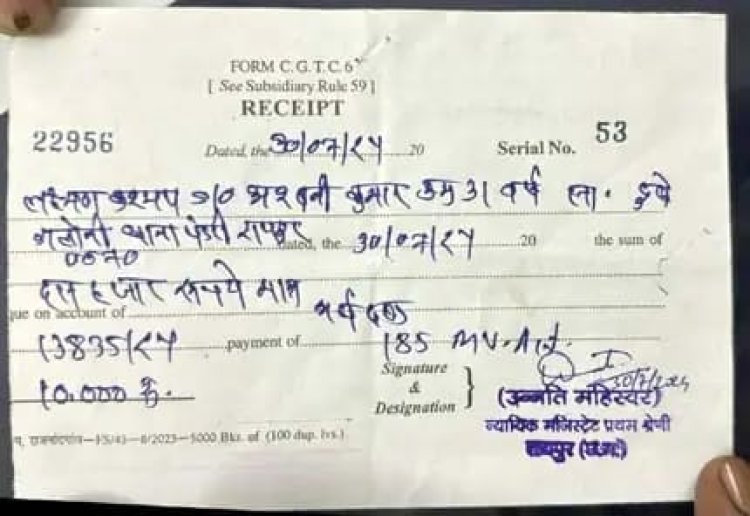 FORM C.G.T.C.6
[ See Subsidiary Rule 59 ]
RECEIPT
22956 Dated, the 30/07/24 20 Serial No. 53
लक्ष्मण कश्यप S/o अश्वनी कुमार उम्र 31 वर्ष सा. दुबे
कालोनी थाना पंडरी रायपुर Dated, the 30/07/24 20 the sum of
दस हजार रूपये मात्र
que on account of अर्थदण्ड
13835/24 payment of 185 M.V. Act.
10.000 रु. Signature & Designation
30/7/2024
(उन्नति महिस्वर)
न्यायिक मजिस्ट्रेट प्रथम श्रेणी
रायपुर (छ.ग.)
राजनांदगांव—8/2023—5000 Bks. of (100 dup. lvs.)